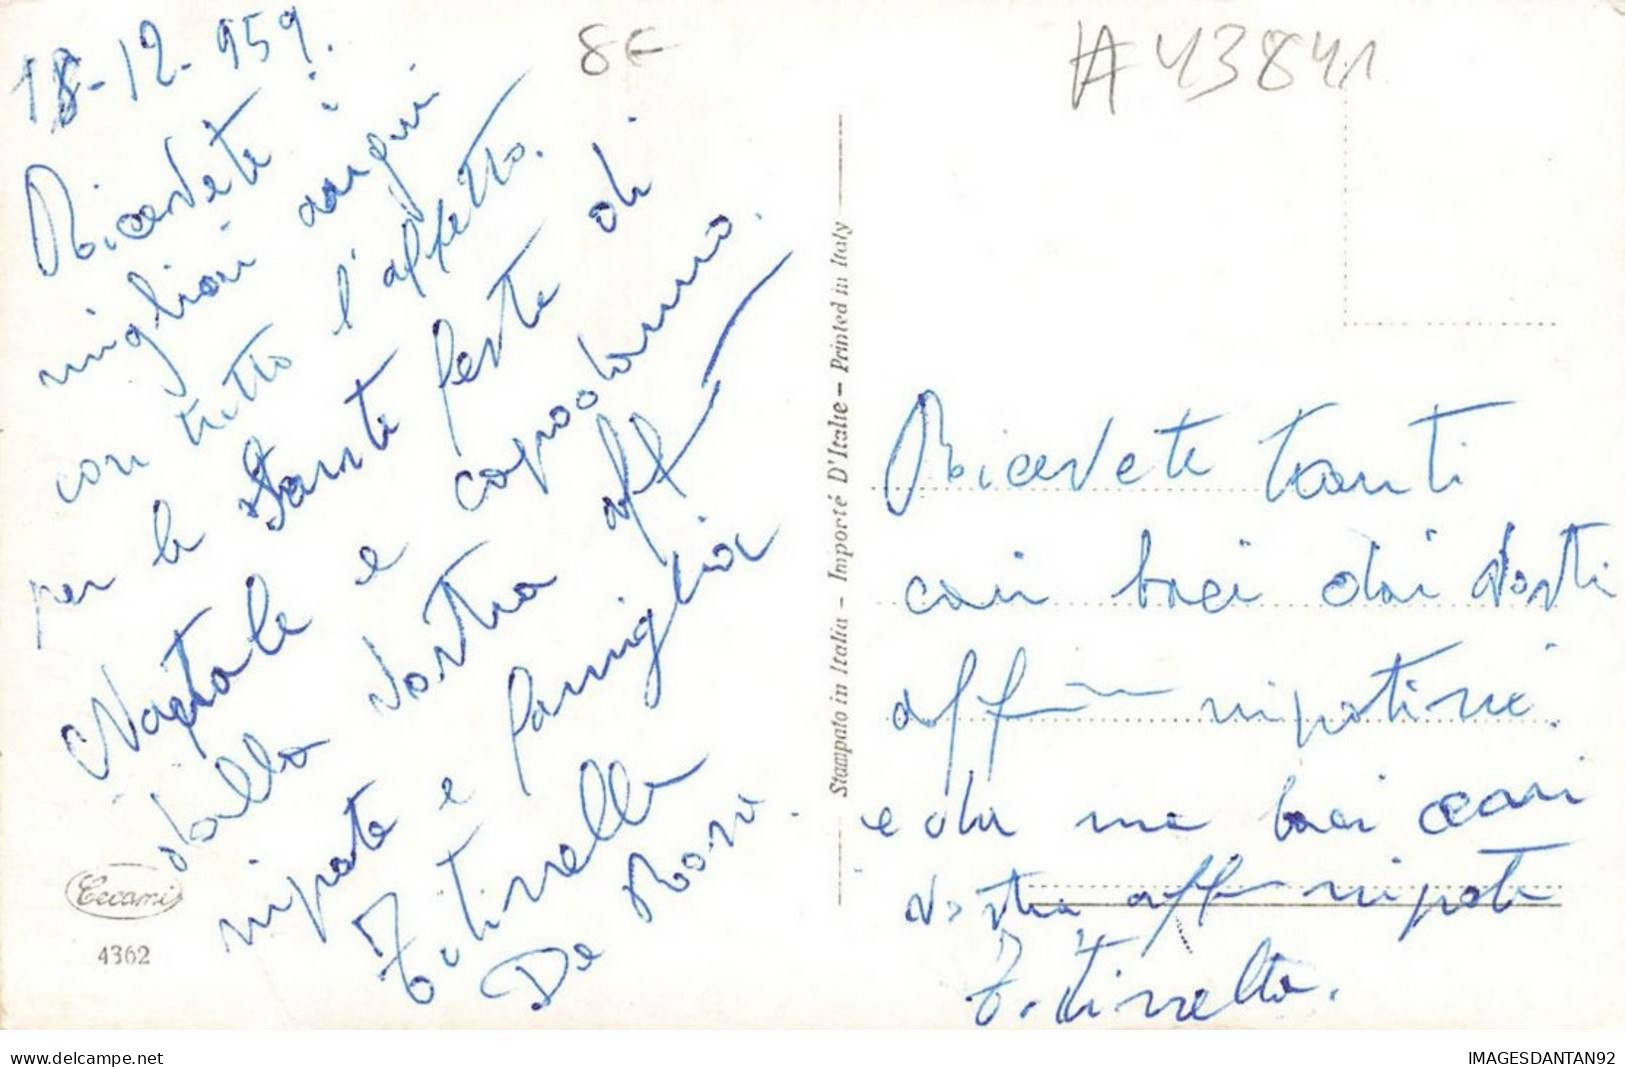 18-12-959.
Ricevete i
migliori auguri
con tutto l'affetto.
per le Sante feste di
Natale e capodanno.
dalla vostra aff
nipote e famiglia
Titinella
De Rosi.
8€
#43841
Stampato in Italia - Importé D'Italie - Printed in Italy
Ricevete tanti
cari baci dai vostri
aff nipotini.
e da me baci cari
vostra aff nipote
Titinella.
Ceccami
4362
www.delcampe.net
IMAGESDANTAN92